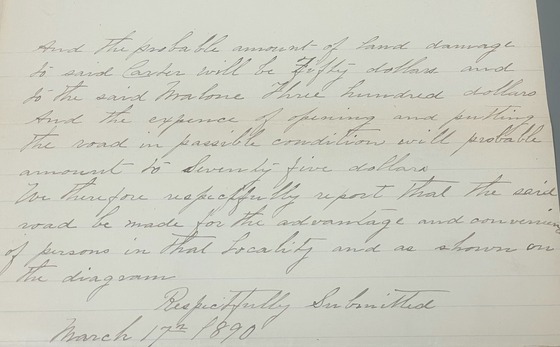 And the probable amount of land damage
to said Carter will be Fifty dollars and
to the said Malone Three hundred dollars
And the expence of opening and putting
the road in passible condition will probable
amount to Seventy five dollars
We therefore respectfully report that the said
road be made for the advantage and convenienc
of persons in that Locality and as shown on
the diagram
Respectfully Submitted
March 17th 1890